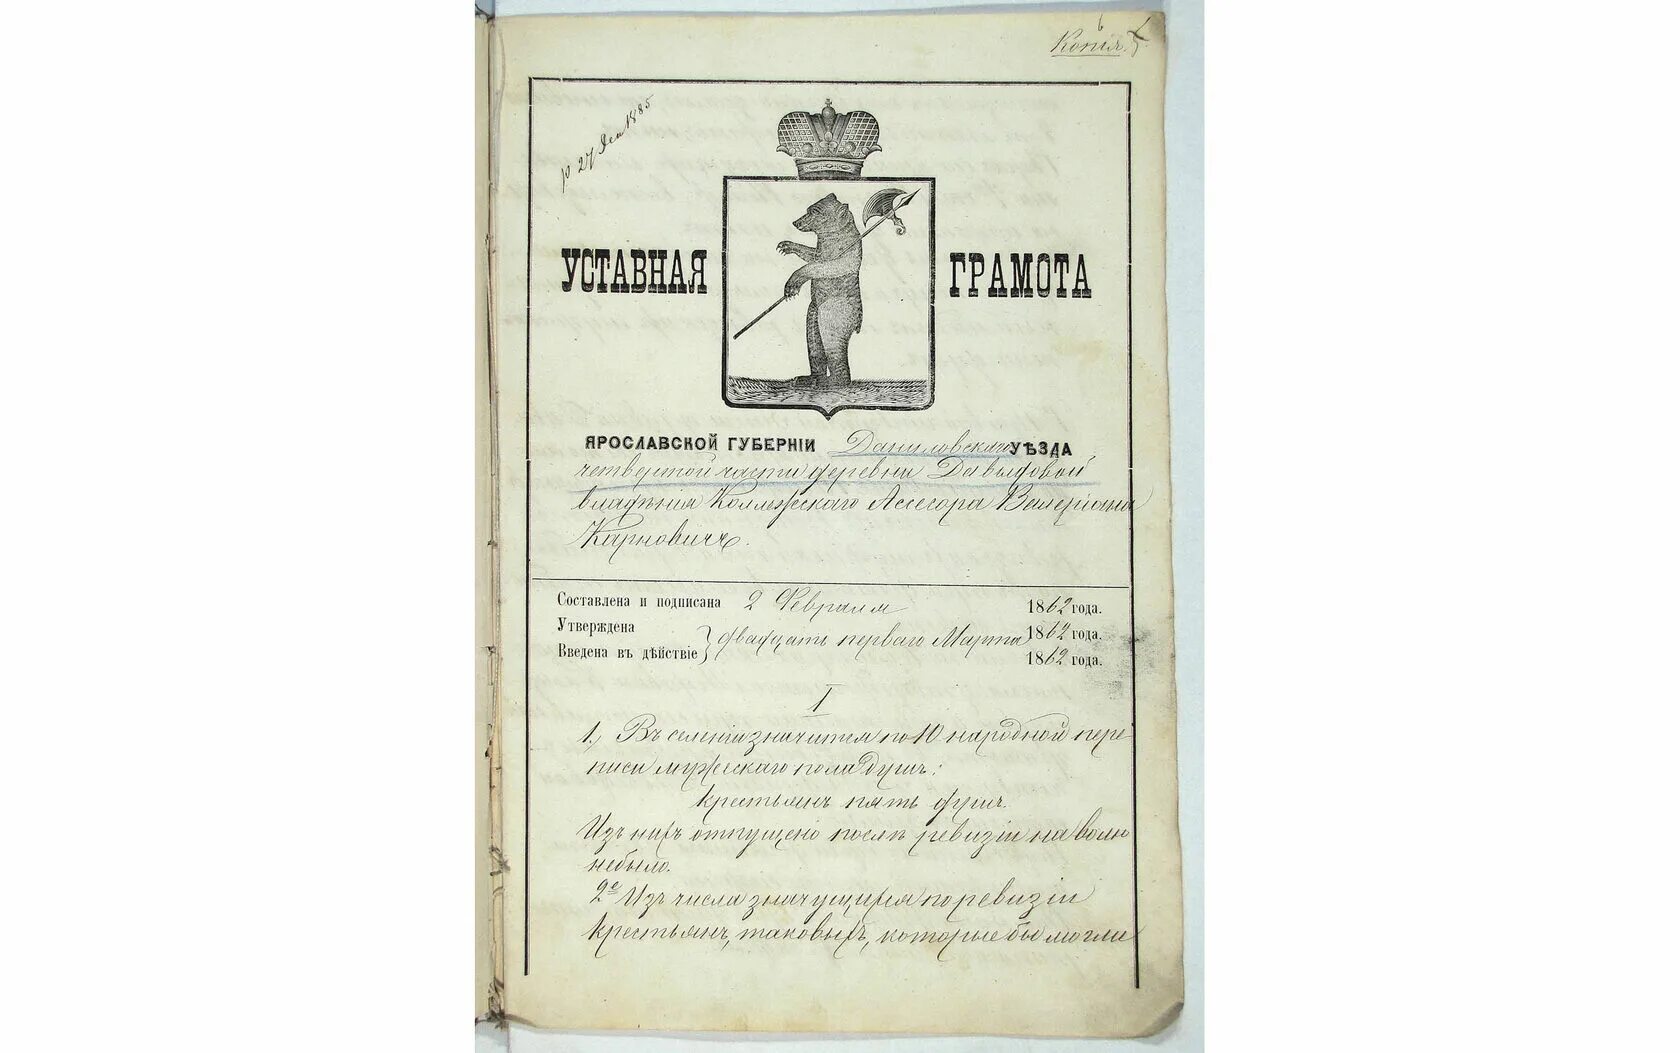 Копія.
27 1885
УСТАВНАЯ ГРАМОТА
ЯРОСЛАВСКОЙ ГУБЕРНІИ Даниловскаго УѢЗДА
четвертой части деревни Давыдовой
владѣнія Коллежскаго Ассесора Валеріана
Карновичъ.
Составлена и подписана 2 Февраля 1862 года.
Утверждена } двадцать перваго Марта 1862 года.
Введена въ дѣйствіе 1862 года.
I
1. Въ селеніи значится по 10 народной пере
писи мужескаго пола душъ:
крестьянъ пять душъ.
Изъ нихъ отпущено послѣ ревизіи на волю
небыло.
2е Изъ числа значущихся по ревизіи
крестьянъ, таковыхъ, которые бы могли